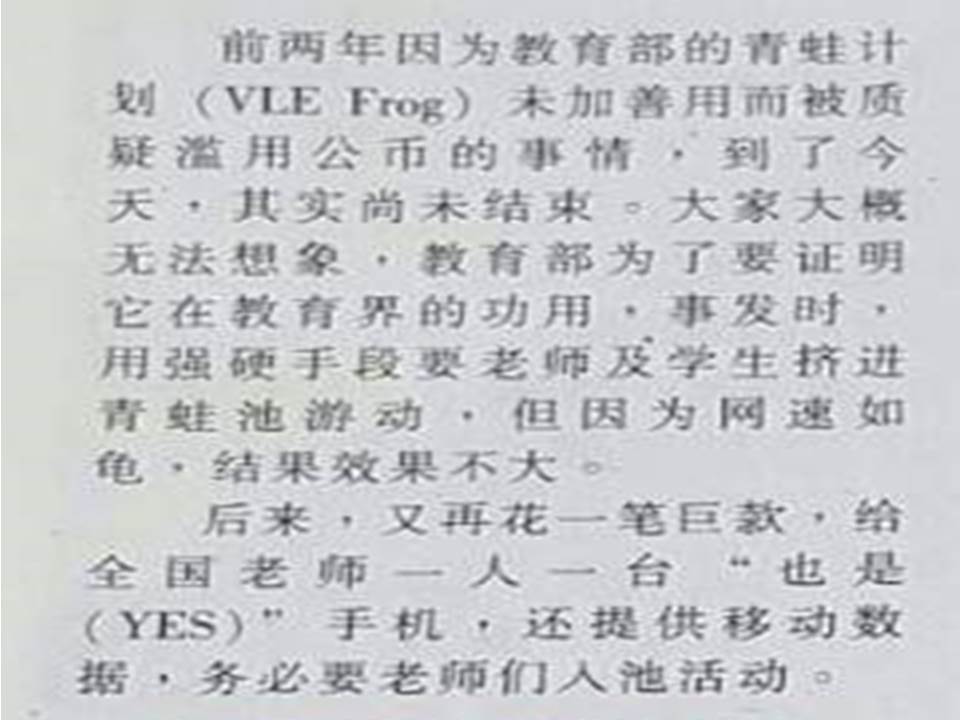 前两年因为教育部的青蛙计
划（VLE Frog）未加善用而被质
疑滥用公币的事情，到了今
天，其实尚未结束。大家大概
无法想象，教育部为了要证明
它在教育界的功用，事发时，
用强硬手段要老师及学生挤进
青蛙池游动，但因为网速如
龟，结果效果不大。
后来，又再花一笔巨款，给
全国老师一人一台“也是
(YES)”手机，还提供移动数
据，务必要老师们入池活动。